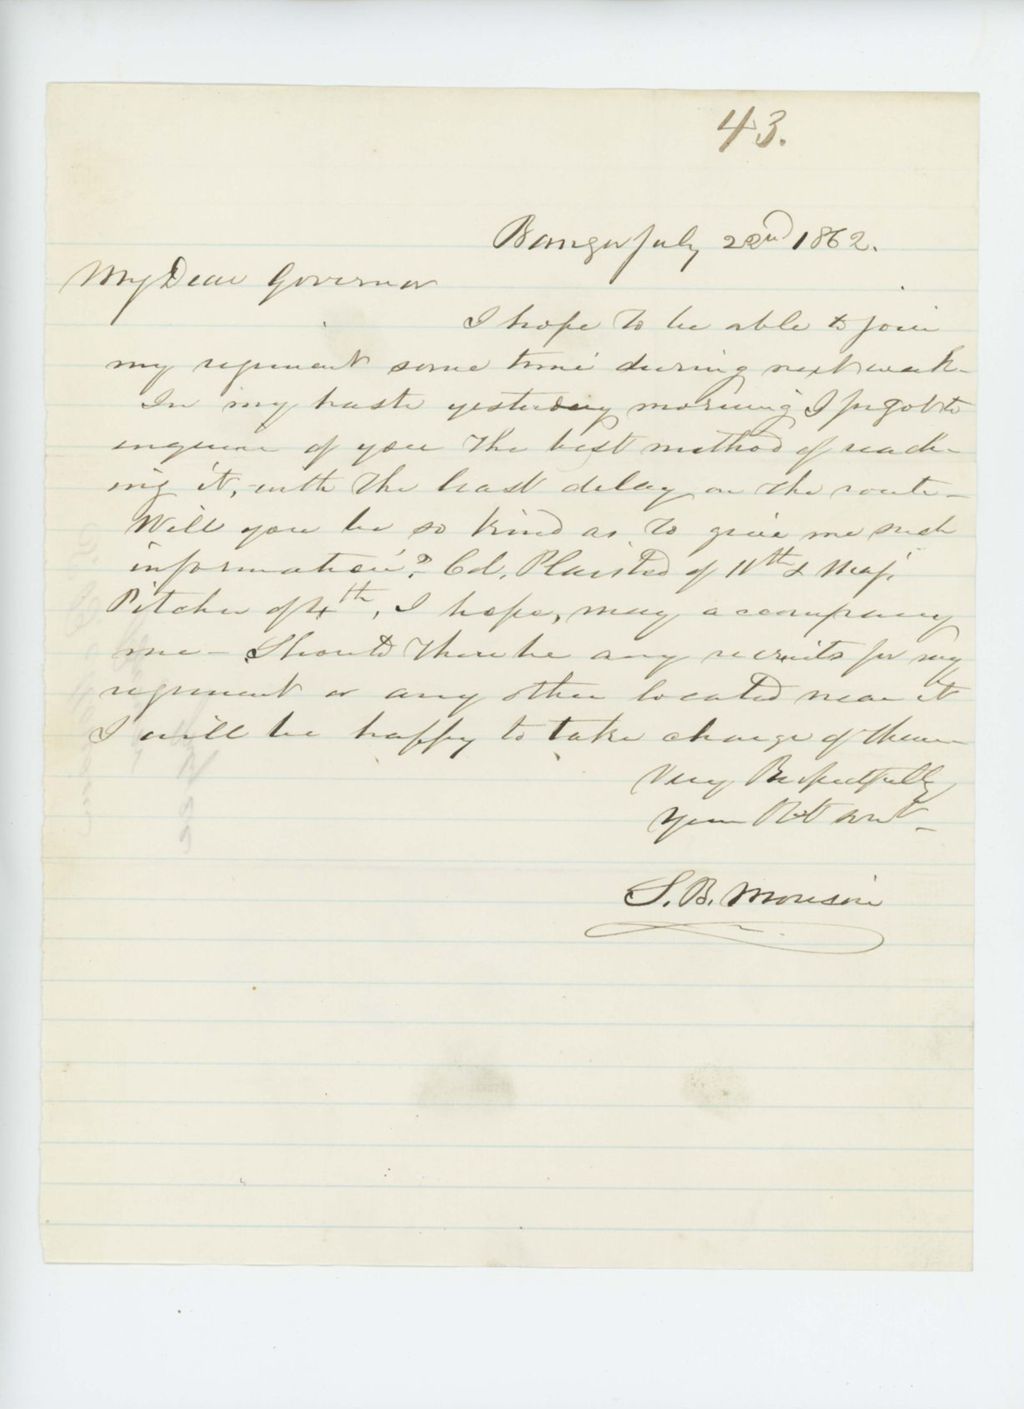 43.
Bangor July 22nd 1862.
My Dear Governor
I hope to be able to join
my regiment some time during next week-
In my haste yesterday morning I forgot to
inquire of you the best method of reach-
ing it, with the least delay on the route-
Will you be so kind as to give me such
information? Col. Plaisted of 11th & Maj.
Pitcher of 4th, I hope, may accompany
me - Should there be any recruits for my
regiment or any other located near it
I will be happy to take charge of them-
Very Respectfully
Your Obt Svt-
S. B. Morison